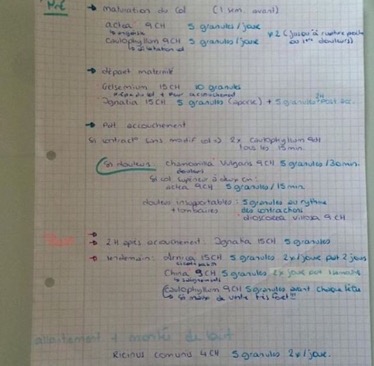 → maturation du col (1 sem. avant)
actea 9CH 5 granules / jour
Caulophyllum 9CH 5 granules / jour x2 (jusqu'à rupture poche
→ départ maternité
Gelsemium 15CH 10 granules
Ignatia 15CH 5 granules + 5 granules
→ accouchement
si contract° sans modif col → 2x Caulophyllum 9CH
tous les 15 min.
Si douleurs: Chamomilla Vulgaris 9CH 5 granules / 30min.
actea 9CH 5 granules / 15 min.
douleur insupportables: 5 granules au rythme
+ lombaires des contractions
dioscorea villosa 9CH
→
→ 2H après accouchement: Ignatia 15CH 5 granules
→ lendemain: arnica 15CH 5 granules 2x / jour pdt 2 jours
China 9CH 5 granules 2x jour pdt 1 semaine
Caulophyllum 9CH 5 granules avant chaque tétée
allaitement + montée de lait
Ricinus comunis 4CH 5 granules 2x / jour.